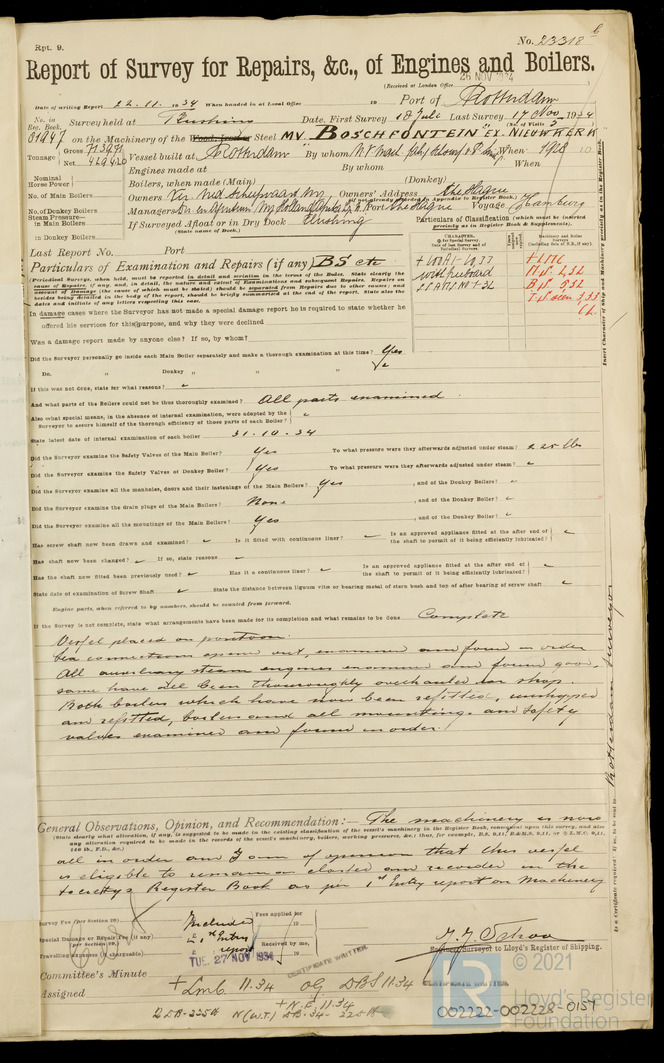 Rpt. 9.
No. 23318
Report of Survey for Repairs, &c., of Engines and Boilers.
(Received at London Office 26 NOV 1934
Date of writing Report 22.11.1934 When handed in at Local Office 19 Port of Rotterdam
No. in Reg. Book. Survey held at Flushing Date, First Survey 18 July Last Survey 17 Nov 1934
(No. of Visits 5
on the Machinery of the Wood, Iron or Steel MV. "BOSCHFONTEIN" EX. NIEUWKERK
Tonnage Gross
Net
Vessel built at Rotterdam By whom When 1928
Engines made at By whom When
Nominal Horse Power
Boilers, when made (Main) (Donkey)
No. of Main Boilers
Owners Owners' Address The Hague
(if not already recorded in Appendix to Register Book.)
No. of Donkey Boilers
Managers Port The Hague Voyage Hamburg
Steam Pressure—
in Main Boilers
in Donkey Boilers
If Surveyed Afloat or in Dry Dock Flushing
(State name of Dock.)
Particulars of Classification (which must be inserted precisely as in Register Book & Supplements).
Last Report No. Port
Particulars of Examination and Repairs (if any) BS etc
CHARACTER.
Machinery and Boiler Surveys
with freeboard
(Periodical Surveys, when held, must be reported in detail and seriatim in the terms of the Rules. State clearly the
In damage cases where the Surveyor has not made a special damage report he is required to state whether he
offered his services for this purpose, and why they were declined
Was a damage report made by anyone else? If so, by whom?
Did the Surveyor personally go inside each Main Boiler separately and make a thorough examination at this time? Yes
Do. " Donkey " " " "
If this was not done, state for what reasons?
And what parts of the Boilers could not be thus thoroughly examined? All parts examined
Also what special means, in the absence of internal examination, were adopted by the
Surveyor to assure himself of the thorough efficiency of those parts of each Boiler?
State latest date of internal examination of each boiler 31.10.34
Did the Surveyor examine the Safety Valves of the Main Boiler? Yes To what pressure were they afterwards adjusted under steam? 225 lbs
Did the Surveyor examine the Safety Valves of Donkey Boiler? Yes To what pressure were they afterwards adjusted under steam?
Did the Surveyor examine all the manholes, doors and their fastenings of the Main Boilers? Yes , and of the Donkey Boilers?
Did the Surveyor examine the drain plugs of the Main Boilers? None , and of the Donkey Boiler?
Did the Surveyor examine all the mountings of the Main Boilers? Yes , and of the Donkey Boiler?
Has screw shaft now been drawn and examined? Is it fitted with continuous liner? Is an approved appliance fitted at the after end of the shaft to permit of it being efficiently lubricated?
Has shaft now been changed? If so, state reasons
Has the shaft now fitted been previously used? Has it a continuous liner? Is an approved appliance fitted at the after end of the shaft to permit of it being efficiently lubricated?
State date of examination of Screw Shaft State the distance between lignum vitæ or bearing metal of stern bush and top of after bearing of screw shaft
Engine parts, when referred to by numbers, should be counted from forward.
If the Survey is not complete, state what arrangements have been made for its completion and what remains to be done Complete
Vessel placed on pontoon.
Sea connections open out, examined and found in order
All auxiliary steam engines examined and found good,
same have all been thoroughly overhauled in shop.
Both boilers which have now been refitted, unshipped
and refitted, boilers and all mountings and safety
valves examined and found in order.
General Observations, Opinion, and Recommendation:— The machinery is now
(State clearly what alteration, if any, is suggested to be made in the existing classification of the vessel's machinery in the Register Book, consequent upon this survey, and also
any alteration required to be made in the records of the vessel's machinery, boilers, working pressures, &c.;
all in order and I am of opinion that this vessel
is eligible to remain as classed and recorded in the
Society's Register Book as per 1st Entry report on Machinery
Survey Fee (per Section 29) Included
Fees applied for
19
Special Damage or Repair Fee (if any)
(per Section 29.)
in 1st Entry report
Received by me,
19
Travelling Expenses (if chargeable)
Engineer Surveyor to Lloyd's Register of Shipping.
Committee's Minute TUE. 27 NOV 1934
CERTIFICATE WRITTEN
Assigned + LMC 11.34 OG DBS 11.34
CERTIFICATE WRITTEN.
+ N.E. 11.34
2 DB-225 lb N(W.T.) DB-34-225 lb
Insert Character of Ship and Machinery precisely as in the Register Book.
Rotterdam Surveyor
© 2021
Lloyd's Register
Foundation
002222-002228-0157